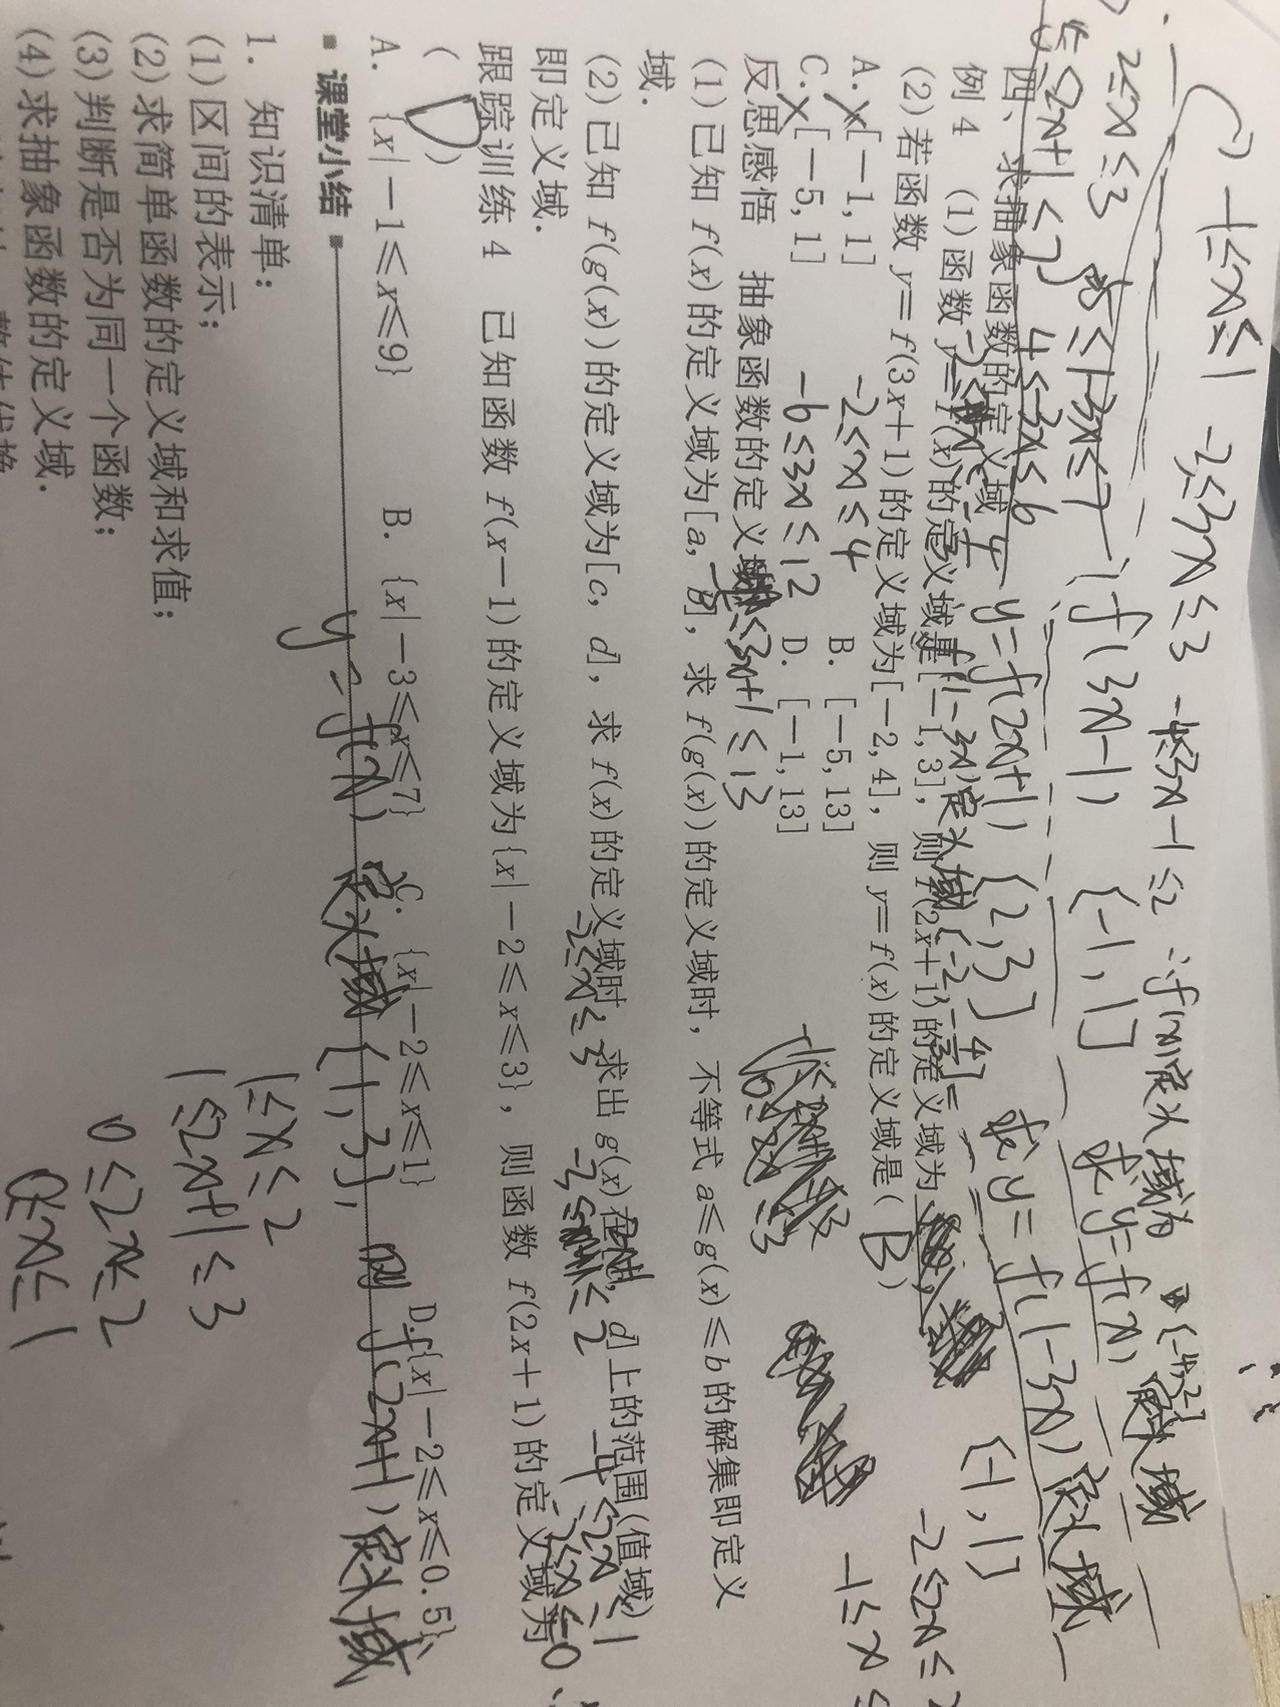 -1≤x≤1 -3≤3x≤3 -4≤3x-1≤2 ∴f(x)定义域为 [-4,2]
2≤x≤3
f(3x-1) [-1,1] 求y=f(x) 定义域
5≤2x+1≤7 5≤1-3x≤7
4≤-3x≤6 y=f(2x+1) [2,3] 求y=f(1-3x)定义域
四、求抽象函数的定义域
例4 (1)函数y=f(x)的定义域是[-1,3],则f(2x+1)的定义域为 [-1,1]
f(1-3x)定义域[-2,-4/3]
-2≤2x≤2
(2)若函数y=f(3x+1)的定义域为[-2,4],则y=f(x)的定义域是(B)
-1≤x≤
A.[-1,1] -2≤x≤4 B.[-5,13]
C.[-5,1] -6≤3x≤12 D.[-1,13]
-5≤3x+1≤13
反思感悟 抽象函数的定义域
(1)已知f(x)的定义域为[a,b],求f(g(x))的定义域时,不等式a≤g(x)≤b的解集即定义
域.
(2)已知f(g(x))的定义域为[c,d],求f(x)的定义域时,求出g(x)在[c,d]上的范围(值域)
即定义域.
-2≤x≤3 -3≤ ≤2 -4≤2x≤1
跟踪训练4 已知函数f(x-1)的定义域为{x|-2≤x≤3},则函数f(2x+1)的定义域为
(D)
A.{x|-1≤x≤9} B.{x|-3≤x≤7} C.{x|-2≤x≤1} D.{x|-2≤x≤0.5}
课堂小结
y=f(x) 定义域[1,3], 则f(2x+1)定义域
1.知识清单:
(1)区间的表示;
(2)求简单函数的定义域和求值;
(3)判断是否为同一个函数;
(4)求抽象函数的定义域.
1≤x≤2
1≤2x+1≤3
0≤2x≤2
0≤x≤1